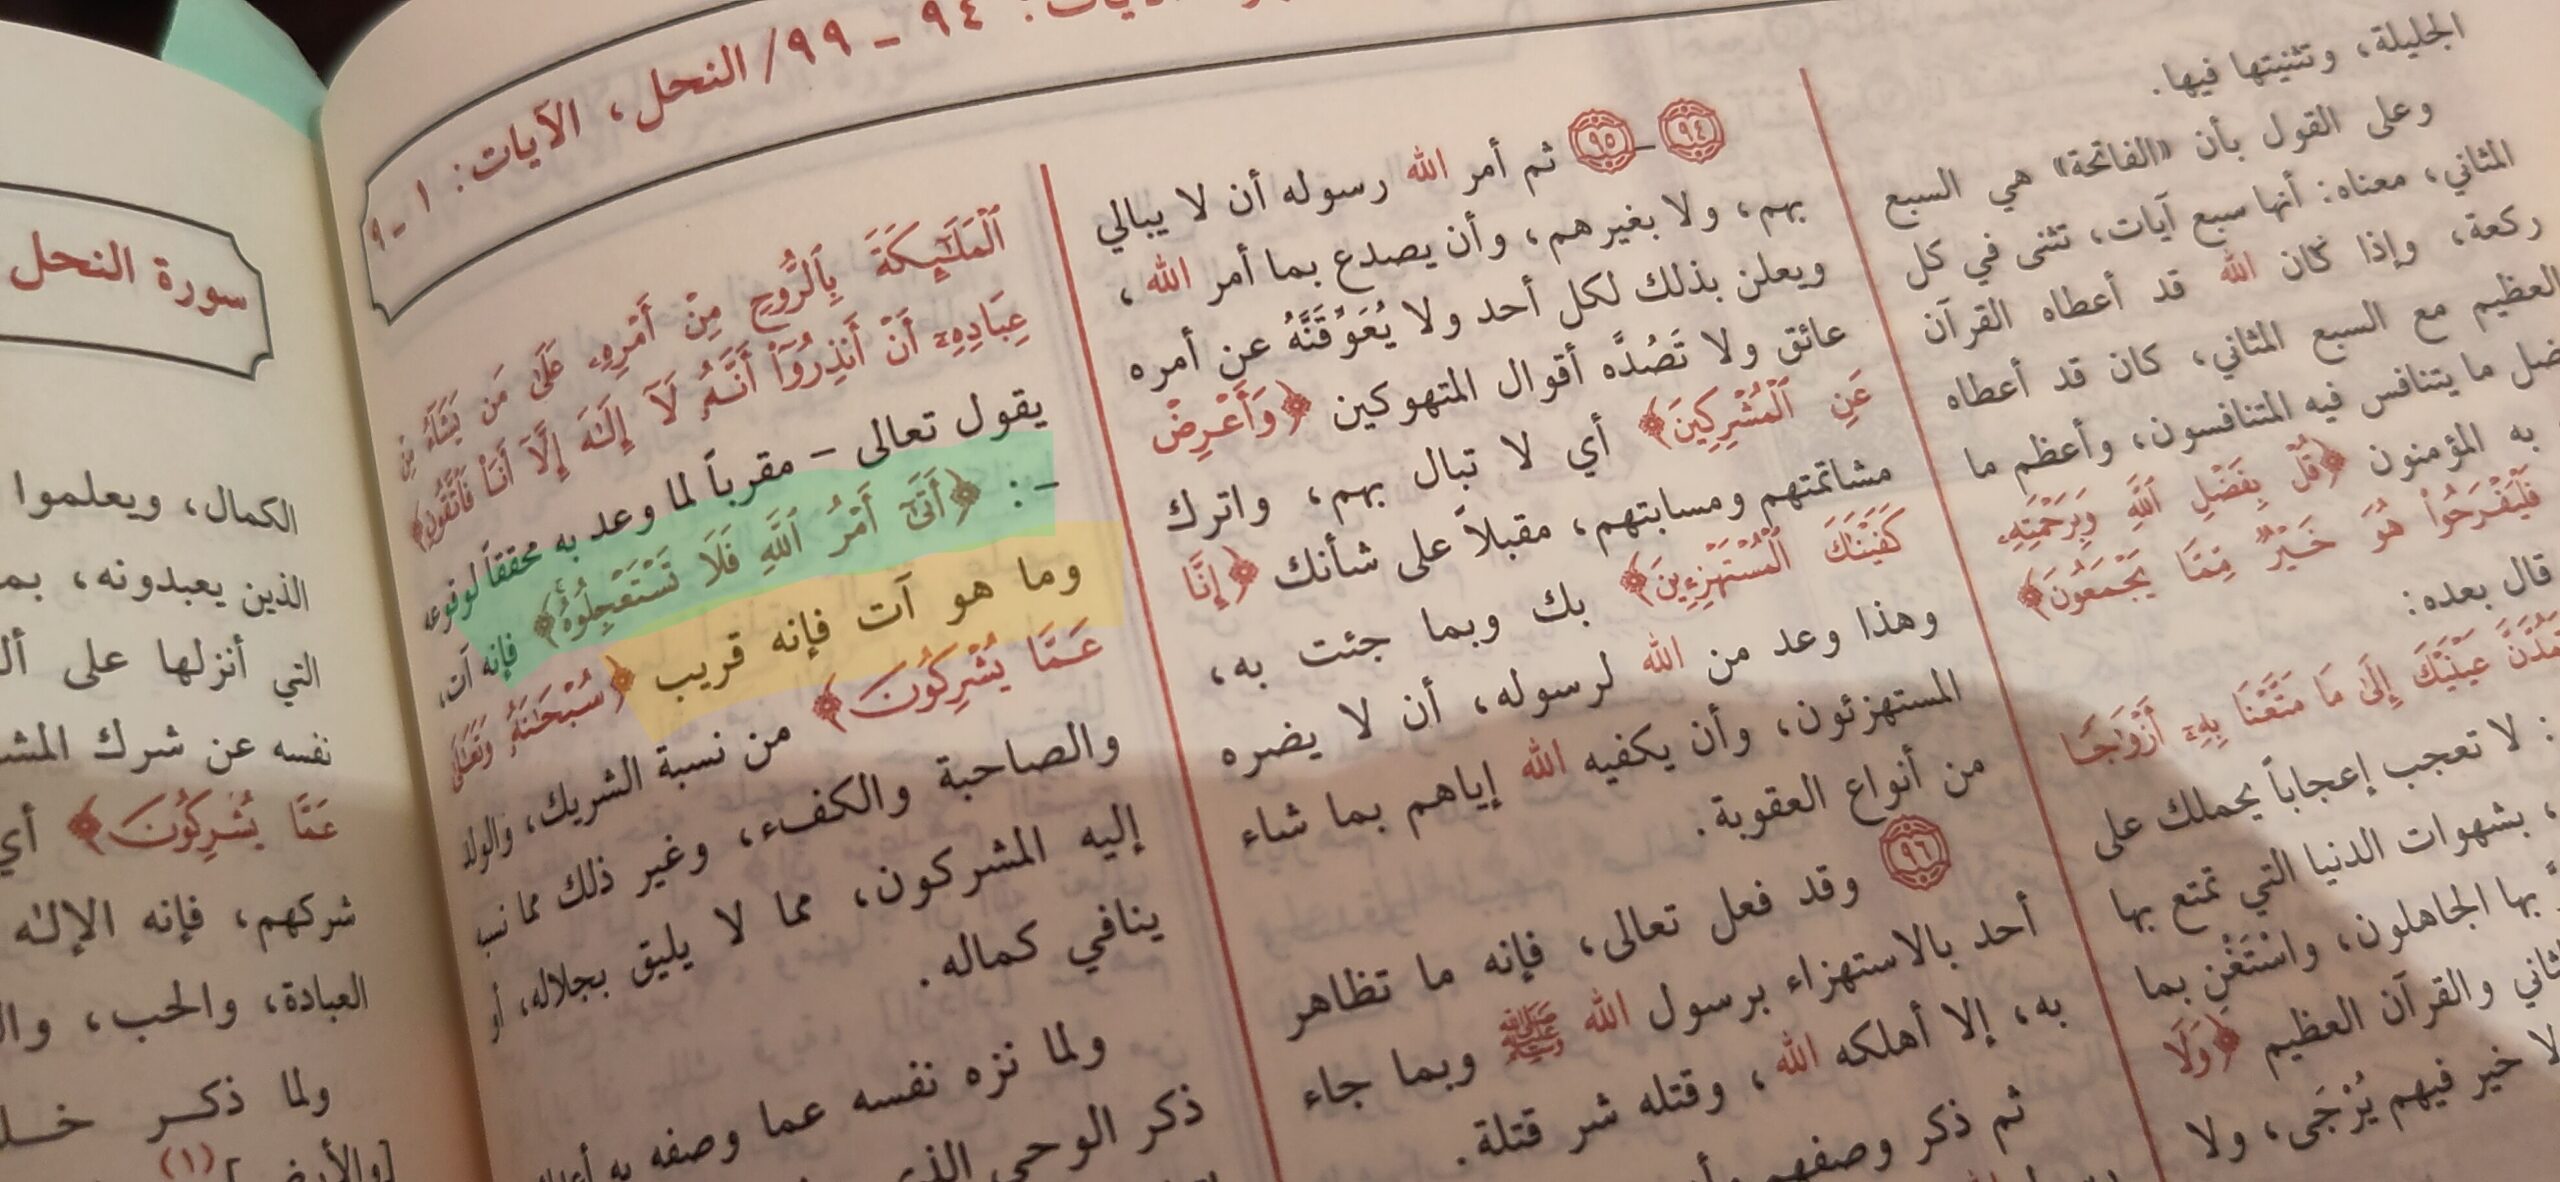 الآيات: ٩٤ - ٩٩/ النحل، الآيات: ١ - ٩
الجليلة، وتثنيتها فيها.
وعلى القول بأن «الفاتحة» هي السبع
المثاني، معناه: أنها سبع آيات، تثنى في كل
ركعة، وإذا كان الله قد أعطاه القرآن
العظيم مع السبع المثاني، كان قد أعطاه
ما يتنافس فيه المتنافسون، وأعظم ما
به المؤمنون ﴿قُلْ بِفَضْلِ ٱللَّهِ وَبِرَحْمَتِهِۦ
فَلْيَفْرَحُوا۟ هُوَ خَيْرٌ مِّمَّا يَجْمَعُونَ﴾
قال بعده:
عَيْنَيْكَ إِلَىٰ مَا مَتَّعْنَا بِهِۦٓ أَزْوَٰجًا
: لا تعجب إعجاباً يحملك على
، بشهوات الدنيا التي تمتع بها
بها الجاهلون، واسْتَغْنِ بما
والقرآن العظيم ﴿وَلَا
لا خير فيهم يُرْجَى، ولا
٩٤ - ٩٥ ثم أمر الله رسوله أن لا يبالي
بهم، ولا بغيرهم، وأن يصدع بما أمر الله،
ويعلن بذلك لكل أحد ولا يُعَوِّقَنَّهُ عن أمره
عائق ولا تَصُدَّه أقوال المتهوكين ﴿وَأَعْرِضْ
عَنِ ٱلْمُشْرِكِينَ﴾ أي لا تبال بهم، واترك
مشاتمتهم ومسابتهم، مقبلاً على شأنك ﴿إِنَّا
كَفَيْنَٰكَ ٱلْمُسْتَهْزِءِينَ﴾ بك وبما جئت به،
وهذا وعد من الله لرسوله، أن لا يضره
المستهزئون، وأن يكفيه الله إياهم بما شاء
من أنواع العقوبة.
٩٦ وقد فعل تعالى، فإنه ما تظاهر
أحد بالاستهزاء برسول الله ﷺ وبما جاء
به، إلا أهلكه الله، وقتله شر قتلة.
ثم ذكر وصفهم
ٱلْمَلَٰٓئِكَةَ بِٱلرُّوحِ مِنْ أَمْرِهِۦ عَلَىٰ مَن يَشَآءُ مِنْ
عِبَادِهِۦٓ أَنْ أَنذِرُوٓا۟ أَنَّهُۥ لَآ إِلَٰهَ إِلَّآ أَنَا۠ فَٱتَّقُونِ﴾
يقول تعالى - مقرباً لما وعد به محققاً لوقوعه
-: ﴿أَتَىٰٓ أَمْرُ ٱللَّهِ فَلَا تَسْتَعْجِلُوهُ﴾ فإنه آت،
وما هو آت فإنه قريب ﴿سُبْحَٰنَهُۥ وَتَعَٰلَىٰ
عَمَّا يُشْرِكُونَ﴾ من نسبة الشريك، والولد
والصاحبة والكفء، وغير ذلك مما نسبه
إليه المشركون، مما لا يليق بجلاله، أو
ينافي كماله.
ولما نزه نفسه عما وصفه به
ذكر الوحي الذي
سورة النحل
الكمال، ويعلموا
الذين يعبدونه، بما
التي أنزلها على
نفسه عن شرك
عَمَّا يُشْرِكُونَ﴾ أي
شركهم، فإنه الإله
العبادة، والحب،
ولما ذكر
[والأرض] (١)